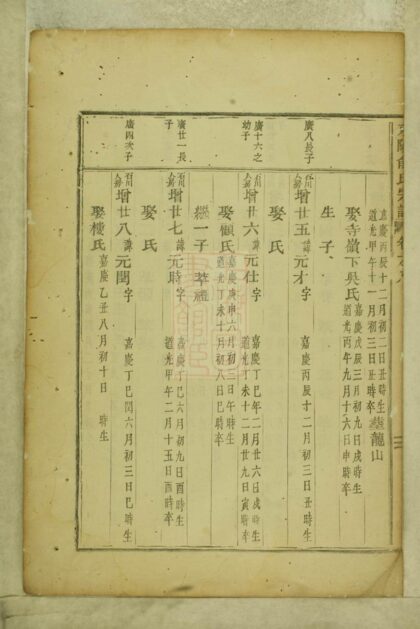 嘉慶丙辰十二月初二日丑時生
道光甲午十一月初三日丑時卒 墓龍山
娶寺嶺下吳氏 嘉慶戊辰三月初九日戌時生
道光丙午九月十六日申時卒
生子
廣八長子
增廿五 諱元才 字 嘉慶丙辰十二月初三日丑時生
娶 氏
廣十六之
幼子
增廿六 諱元仕 字 嘉慶丁巳年二月廿六日戌時生
道光丁未十二月廿九日寅時卒
娶顧氏 嘉慶庚申六月初三日午時生
道光丁未十月初八日巳時卒
繼一子 萃禮
廣廿一長
子
增廿七 諱元時 字 嘉慶丁巳六月初九日酉時生
道光甲午二月十五日酉時卒
娶 氏
廣四次子
增廿八 諱元閏 字 嘉慶丁巳閏六月初三日巳時生
娶樓氏 嘉慶乙丑八月初十日 時生